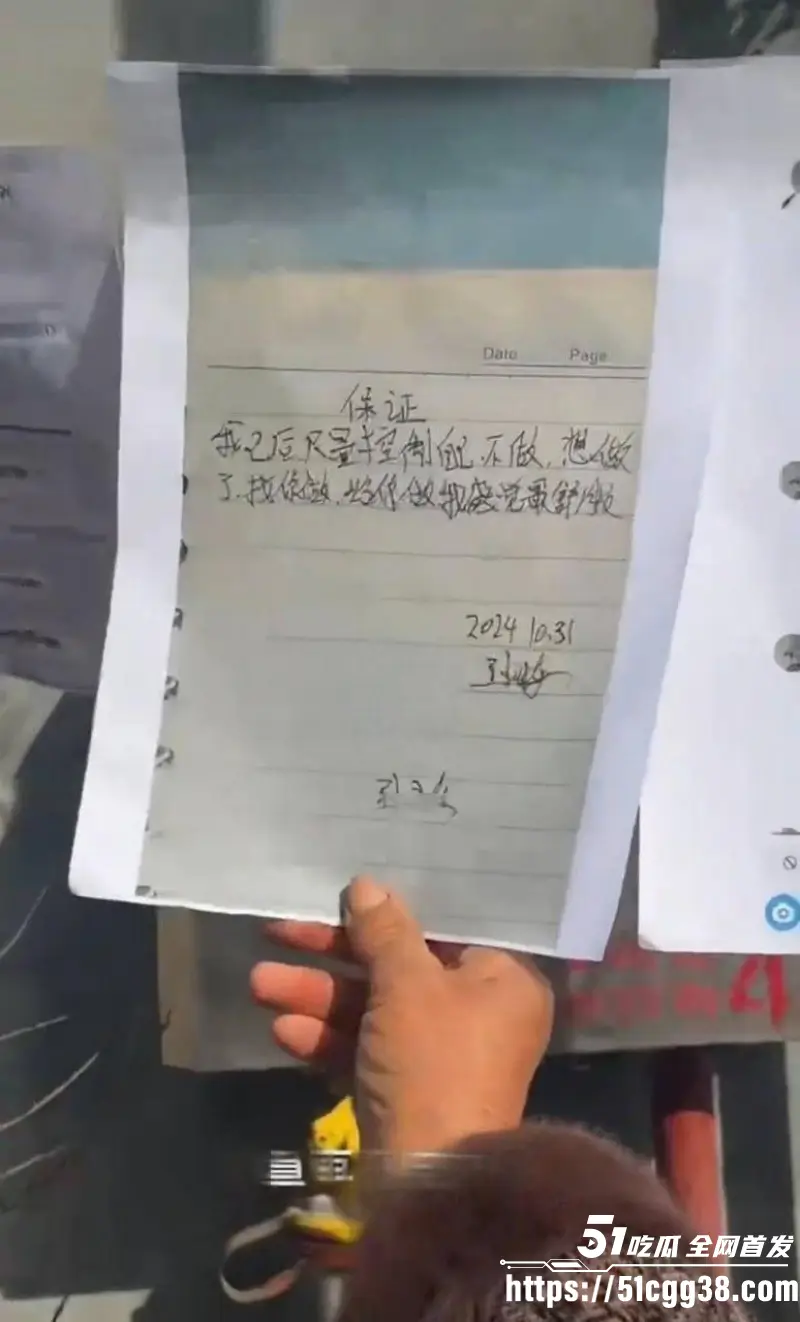 Date Page
保证
我已后尽量控制自己,不做,想做
了,找你做,和你做我感觉最舒服
2024 10.31
4
51吃瓜 全网首发
https://51cgg38.com